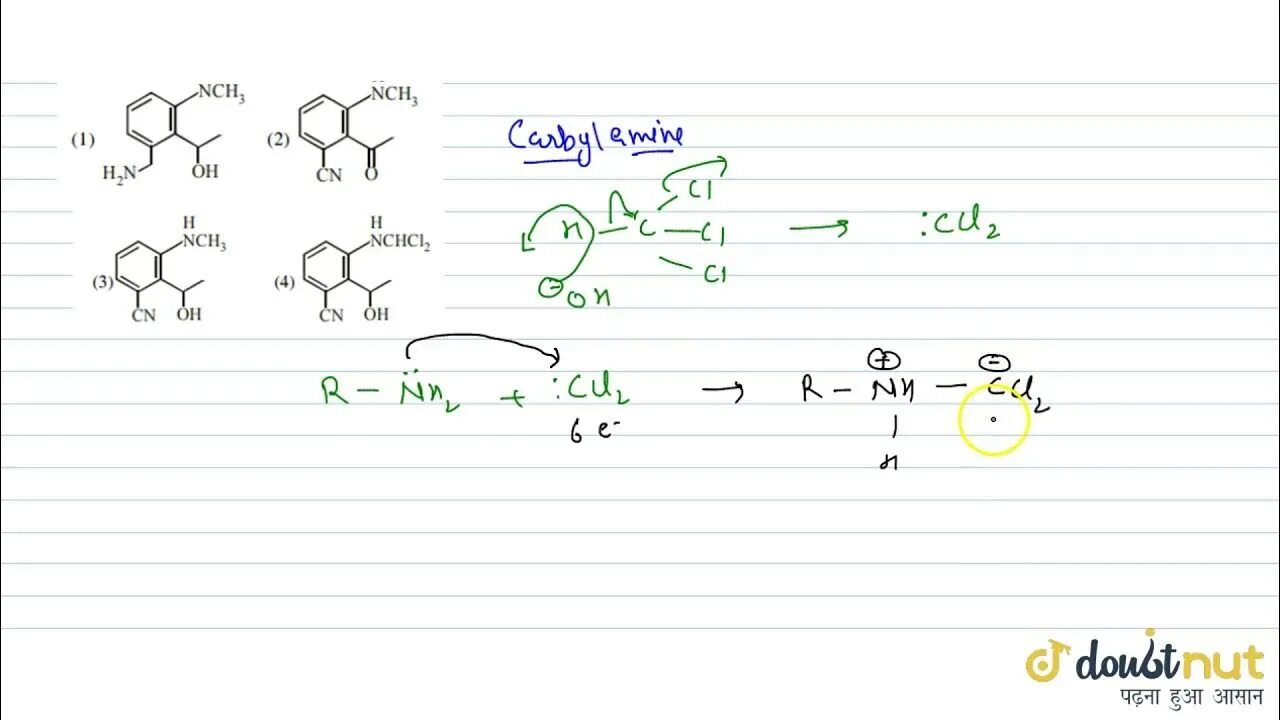 (1) NCH₃ H₂N OH
(2) NCH₃ CN O
(3) H NCH₃ CN OH
(4) H NCHCl₂ CN OH
Carbylamine
H – C – Cl Cl Cl → :CCl₂
⊖OH
R – N̈H₂ + :CCl₂ → R – NH – CCl₂
6 e⁻
⊕ ⊖
H
doubtnut
पढ़ना हुआ आसान